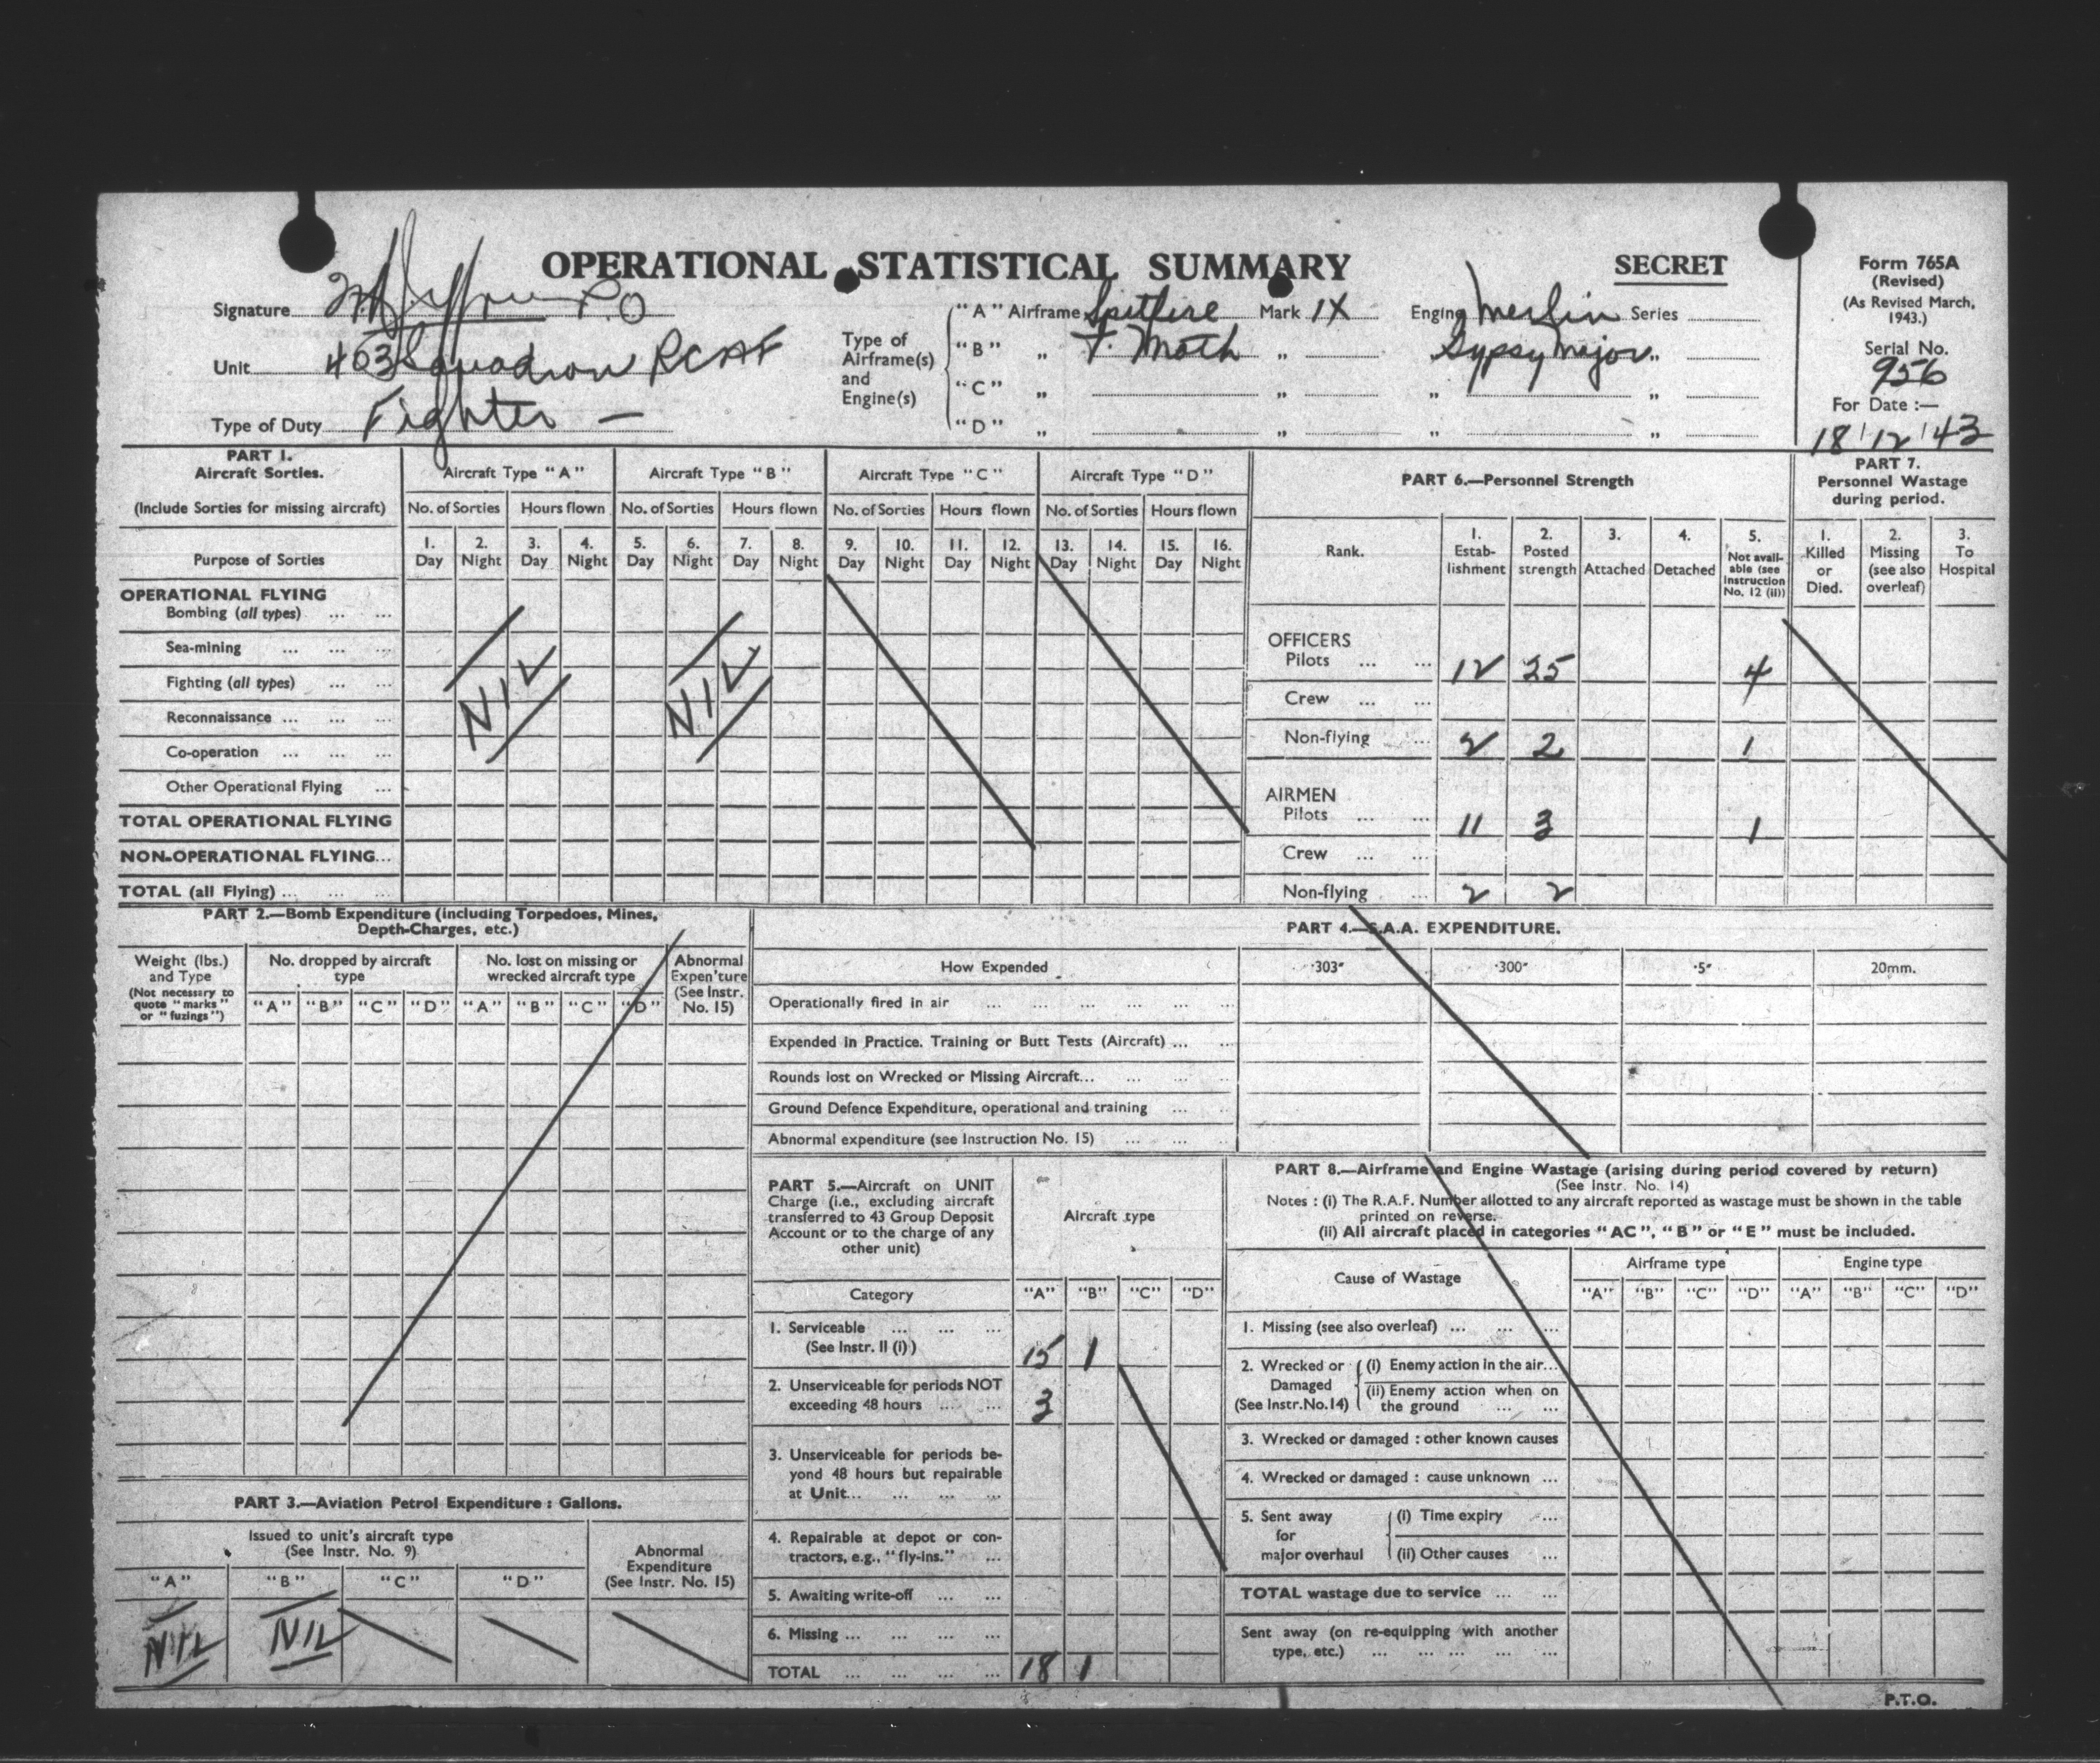 OPERATIONAL STATISTICAL SUMMARY
SECRET
Form 765A
(Revised)
(As Revised March, 1943.)
Serial No.
956
For Date :—
18/12/43
Signature P.O
Unit 403 Squadron RCAF
Type of Duty Fighter —
Type of Airframe(s) and Engine(s)
"A" Airframe Spitfire Mark IX Engine Merlin Series
"B" „ T. Moth „ „ Gypsy Major „
"C" „ „ „ „
"D" „ „ „ „
PART 1.
Aircraft Sorties.
(Include Sorties for missing aircraft)
Purpose of Sorties
Aircraft Type "A" Aircraft Type "B" Aircraft Type "C" Aircraft Type "D"
No. of Sorties Hours flown No. of Sorties Hours flown No. of Sorties Hours flown No. of Sorties Hours flown
1. 2. 3. 4. 5. 6. 7. 8. 9. 10. 11. 12. 13. 14. 15. 16.
Day Night Day Night Day Night Day Night Day Night Day Night Day Night Day Night
OPERATIONAL FLYING
Bombing (all types) ... ...
Sea-mining ... ... ...
Fighting (all types) ... ...
Reconnaissance ... ... ...
Co-operation ... ... ...
Other Operational Flying ...
TOTAL OPERATIONAL FLYING
NON-OPERATIONAL FLYING...
TOTAL (all Flying) ... ... ...
NIL NIL
PART 6.—Personnel Strength
Rank.
1. Estab- lishment
2. Posted strength
3. Attached
4. Detached
5. Not avail- able (see Instruction No. 12 (ii))
OFFICERS
Pilots ... ... 12 25 4
Crew ... ...
Non-flying ... 2 2 1
AIRMEN
Pilots ... ... 11 3 1
Crew ... ...
Non-flying ... 2 2
PART 7.
Personnel Wastage during period.
1. Killed or Died.
2. Missing (see also overleaf)
3. To Hospital
PART 2.—Bomb Expenditure (including Torpedoes, Mines, Depth-Charges, etc.)
Weight (lbs.) and Type
(Not necessary to quote "marks" or "fuzings")
No. dropped by aircraft type
No. lost on missing or wrecked aircraft type
Abnormal Expen'ture (See Instr. No. 15)
"A" "B" "C" "D" "A" "B" "C" "D"
PART 4.—S.A.A. EXPENDITURE.
How Expended ·303" ·300" ·5" 20mm.
Operationally fired in air ... ... ... ... ... ...
Expended in Practice. Training or Butt Tests (Aircraft) ... ...
Rounds lost on Wrecked or Missing Aircraft... ... ... ...
Ground Defence Expenditure, operational and training ... ...
Abnormal expenditure (see Instruction No. 15) ... ... ...
PART 3.—Aviation Petrol Expenditure : Gallons.
Issued to unit's aircraft type
(See Instr. No. 9)
Abnormal Expenditure (See Instr. No. 15)
"A" "B" "C" "D"
NIL NIL
PART 5.—Aircraft on UNIT Charge (i.e., excluding aircraft transferred to 43 Group Deposit Account or to the charge of any other unit)
Aircraft type
Category "A" "B" "C" "D"
1. Serviceable ... ... ...
(See Instr. II (i)) 15 1
2. Unserviceable for periods NOT exceeding 48 hours ... ... 3
3. Unserviceable for periods be- yond 48 hours but repairable at Unit... ... ... ...
4. Repairable at depot or con- tractors, e.g., "fly-ins." ...
5. Awaiting write-off ... ...
6. Missing ... ... ... ...
TOTAL ... ... ... ... 18 1
PART 8.—Airframe and Engine Wastage (arising during period covered by return)
(See Instr. No. 14)
Notes : (i) The R.A.F. Number allotted to any aircraft reported as wastage must be shown in the table printed on reverse.
(ii) All aircraft placed in categories "AC", "B" or "E" must be included.
Cause of Wastage Airframe type Engine type
"A" "B" "C" "D" "A" "B" "C" "D"
1. Missing (see also overleaf) ... ... ...
2. Wrecked or Damaged (See Instr. No. 14)
(i) Enemy action in the air...
(ii) Enemy action when on the ground ... ...
3. Wrecked or damaged : other known causes
4. Wrecked or damaged : cause unknown ...
5. Sent away for major overhaul
(i) Time expiry ...
(ii) Other causes ...
TOTAL wastage due to service ... ...
Sent away (on re-equipping with another type, etc.) ... ... ... ... ...
P.T.O.